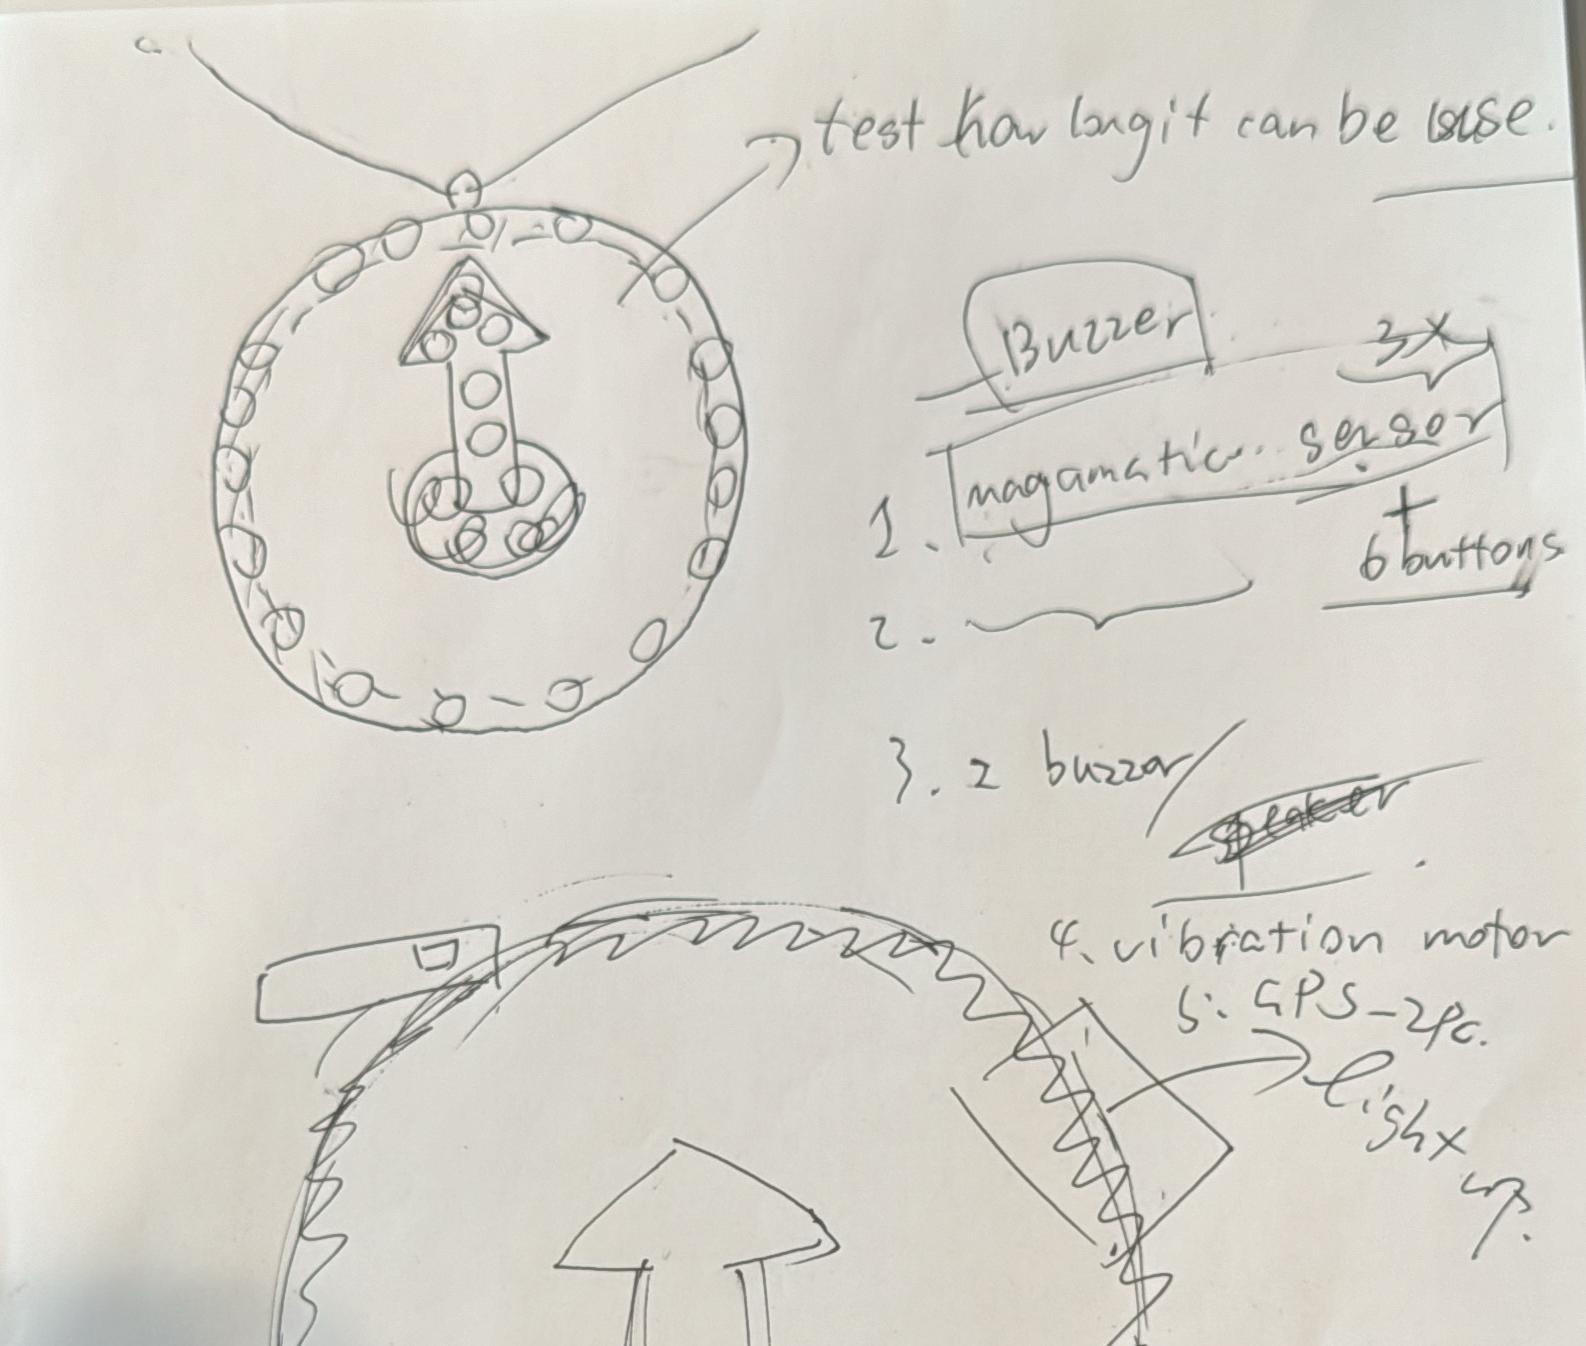 test how long it can be use.
Buzzer
3x
1. magamatic sensor
+
6 buttons
2.
3. 2 buzzor/
speaker
4. vibration motor
5. GPS-2pc.
light
up.